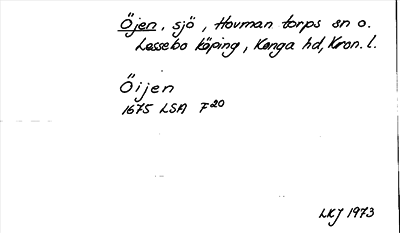 Öjen, sjö, Hovmantorps sn o.
Lessebo köping, Konga hd, Kron. l.
Öijen
1675 LSA F20
LKJ 1973